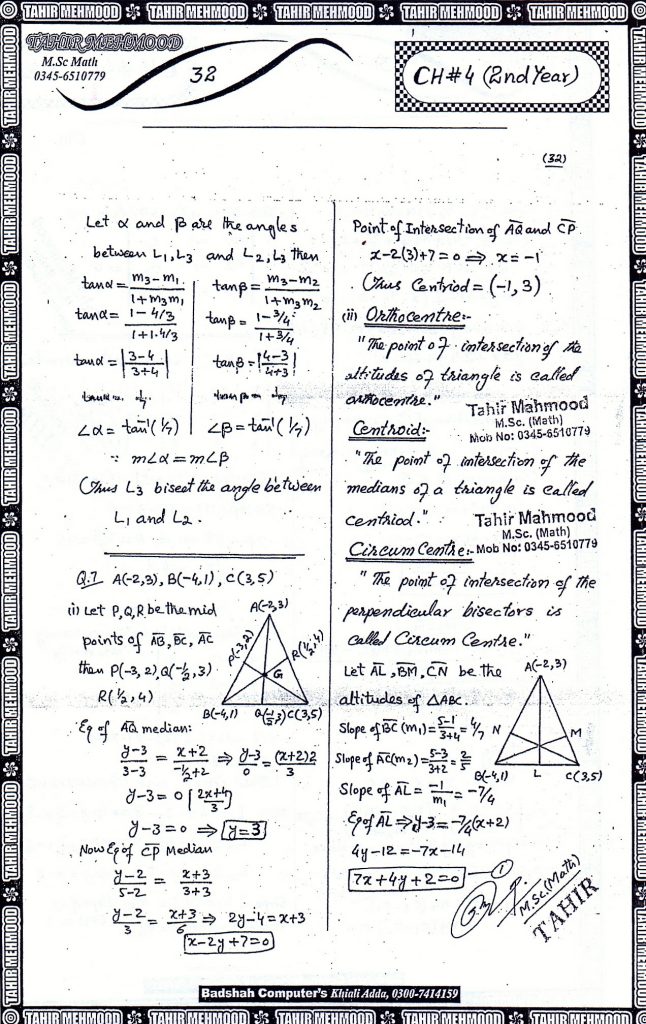 TAHIR MEHMOOD TAHIR MEHMOOD TAHIR MEHMOOD TAHIR MEHMOOD TAHIR MEHMOOD TAHIR MEHMOOD
TAHIR MEHMOOD
M.Sc Math
0345-6510779
32
CH#4 (2nd Year)
(32)
Let α and β are the angles
between L₁,L₃ and L₂,L₃ then
tanα = (m₃-m₁)/(1+m₃m₁)
tanβ = (m₃-m₂)/(1+m₃m₂)
tanα = (1-4/3)/(1+1.4/3)
tanβ = (1-3/4)/(1+3/4)
tanα = |(3-4)/(3+4)|
tanβ = |(4-3)/(4+3)|
tanα = 1/7
tanβ = 1/7
∠α = tan⁻¹(1/7)
∠β = tan⁻¹(1/7)
∵ m∠α = m∠β
Thus L₃ bisect the angle between
L₁ and L₂.
Q.7 A(-2,3), B(-4,1), C(3,5)
(i) Let P,Q,R be the mid
points of AB, BC, AC
then P(-3,2), Q(-1/2,3)
R(1/2,4)
A(-2,3)
P(-3,2)
R(1/2,4)
G
B(-4,1)
Q(-1/2,3)
C(3,5)
Eq of AQ median:
(y-3)/(3-3) = (x+2)/(-1/2+2) ⇒ (y-3)/0 = (x+2)2/3
y-3 = 0[(2x+4)/3]
y-3=0 ⇒ y=3
Now Eq of CP Median
(y-2)/(5-2) = (x+3)/(3+3)
(y-2)/3 = (x+3)/6 ⇒ 2y-4=x+3
x-2y+7=0
Point of Intersection of AQ and CP
x-2(3)+7=0 ⇒ x=-1
Thus Centriod = (-1,3)
(ii) Orthocentre:-
"The point of intersection of the
altitudes of triangle is called
orthocentre."
Tahir Mahmood
M.Sc. (Math)
Mob No: 0345-6510779
Centroid:-
"The point of intersection of the
medians of a triangle is called
centriod."
Tahir Mahmood
M.Sc. (Math)
Mob No: 0345-6510779
Circum Centre:-
"The point of intersection of the
perpendicular bisectors is
called Circum Centre."
Let AL, BM, CN be the
altitudes of △ABC.
A(-2,3)
N
M
B(-4,1)
L
C(3,5)
Slope of BC (m₁) = (5-1)/(3+4) = 4/7
Slope of AC(m₂) = (5-3)/(3+2) = 2/5
Slope of AL = -1/m₁ = -7/4
Eq of AL ⇒ y-3 = -7/4(x+2)
4y-12=-7x-14
7x+4y+2=0 — 1
M.Sc(Math)
TAHIR
Badshah Computer's Khiali Adda, 0300-7414159
TAHIR MEHMOOD TAHIR MEHMOOD TAHIR MEHMOOD TAHIR MEHMOOD TAHIR MEHMOOD TAHIR MEHMOOD